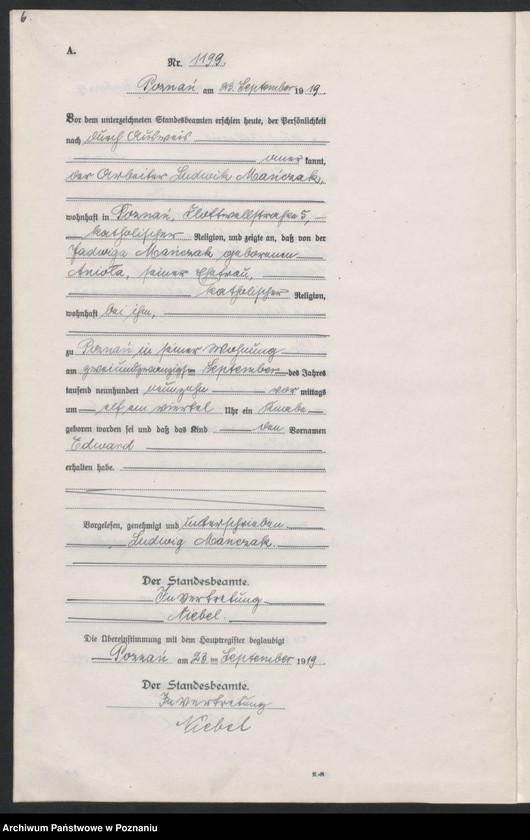 6.
A.
Nr. 1199.
Poznań am 23. September 1919.
Vor dem unterzeichneten Standesbeamten erschien heute, der Persönlichkeit
nach durch Ausweis
aner kannt,
der Arbeiter Ludwik Mańczak,
wohnhaft in Poznań, Flottwellstraße 5,
katholischer Religion, und zeigte an, daß von der
Jadwiga Mańczak geborenen
Anioła, seiner Ehefrau,
katholischer Religion,
wohnhaft bei ihm,
zu Poznań in seiner Wohnung
am zweiundzwanzigsten September des Jahres
tausend neunhundert neunzehn vor mittags
um elf ein viertel Uhr ein Knabe
geboren worden sei und daß das Kind den Vornamen
Edward
erhalten habe.
Vorgelesen, genehmigt und unterschrieben
Ludwig Mańczak.
Der Standesbeamte.
In Vertretung
Niebel.
Die Übereinstimmung mit dem Hauptregister beglaubigt
Poznań am 23 ten September 1919.
Der Standesbeamte.
In Vertretung
Niebel
Archiwum Państwowe w Poznaniu